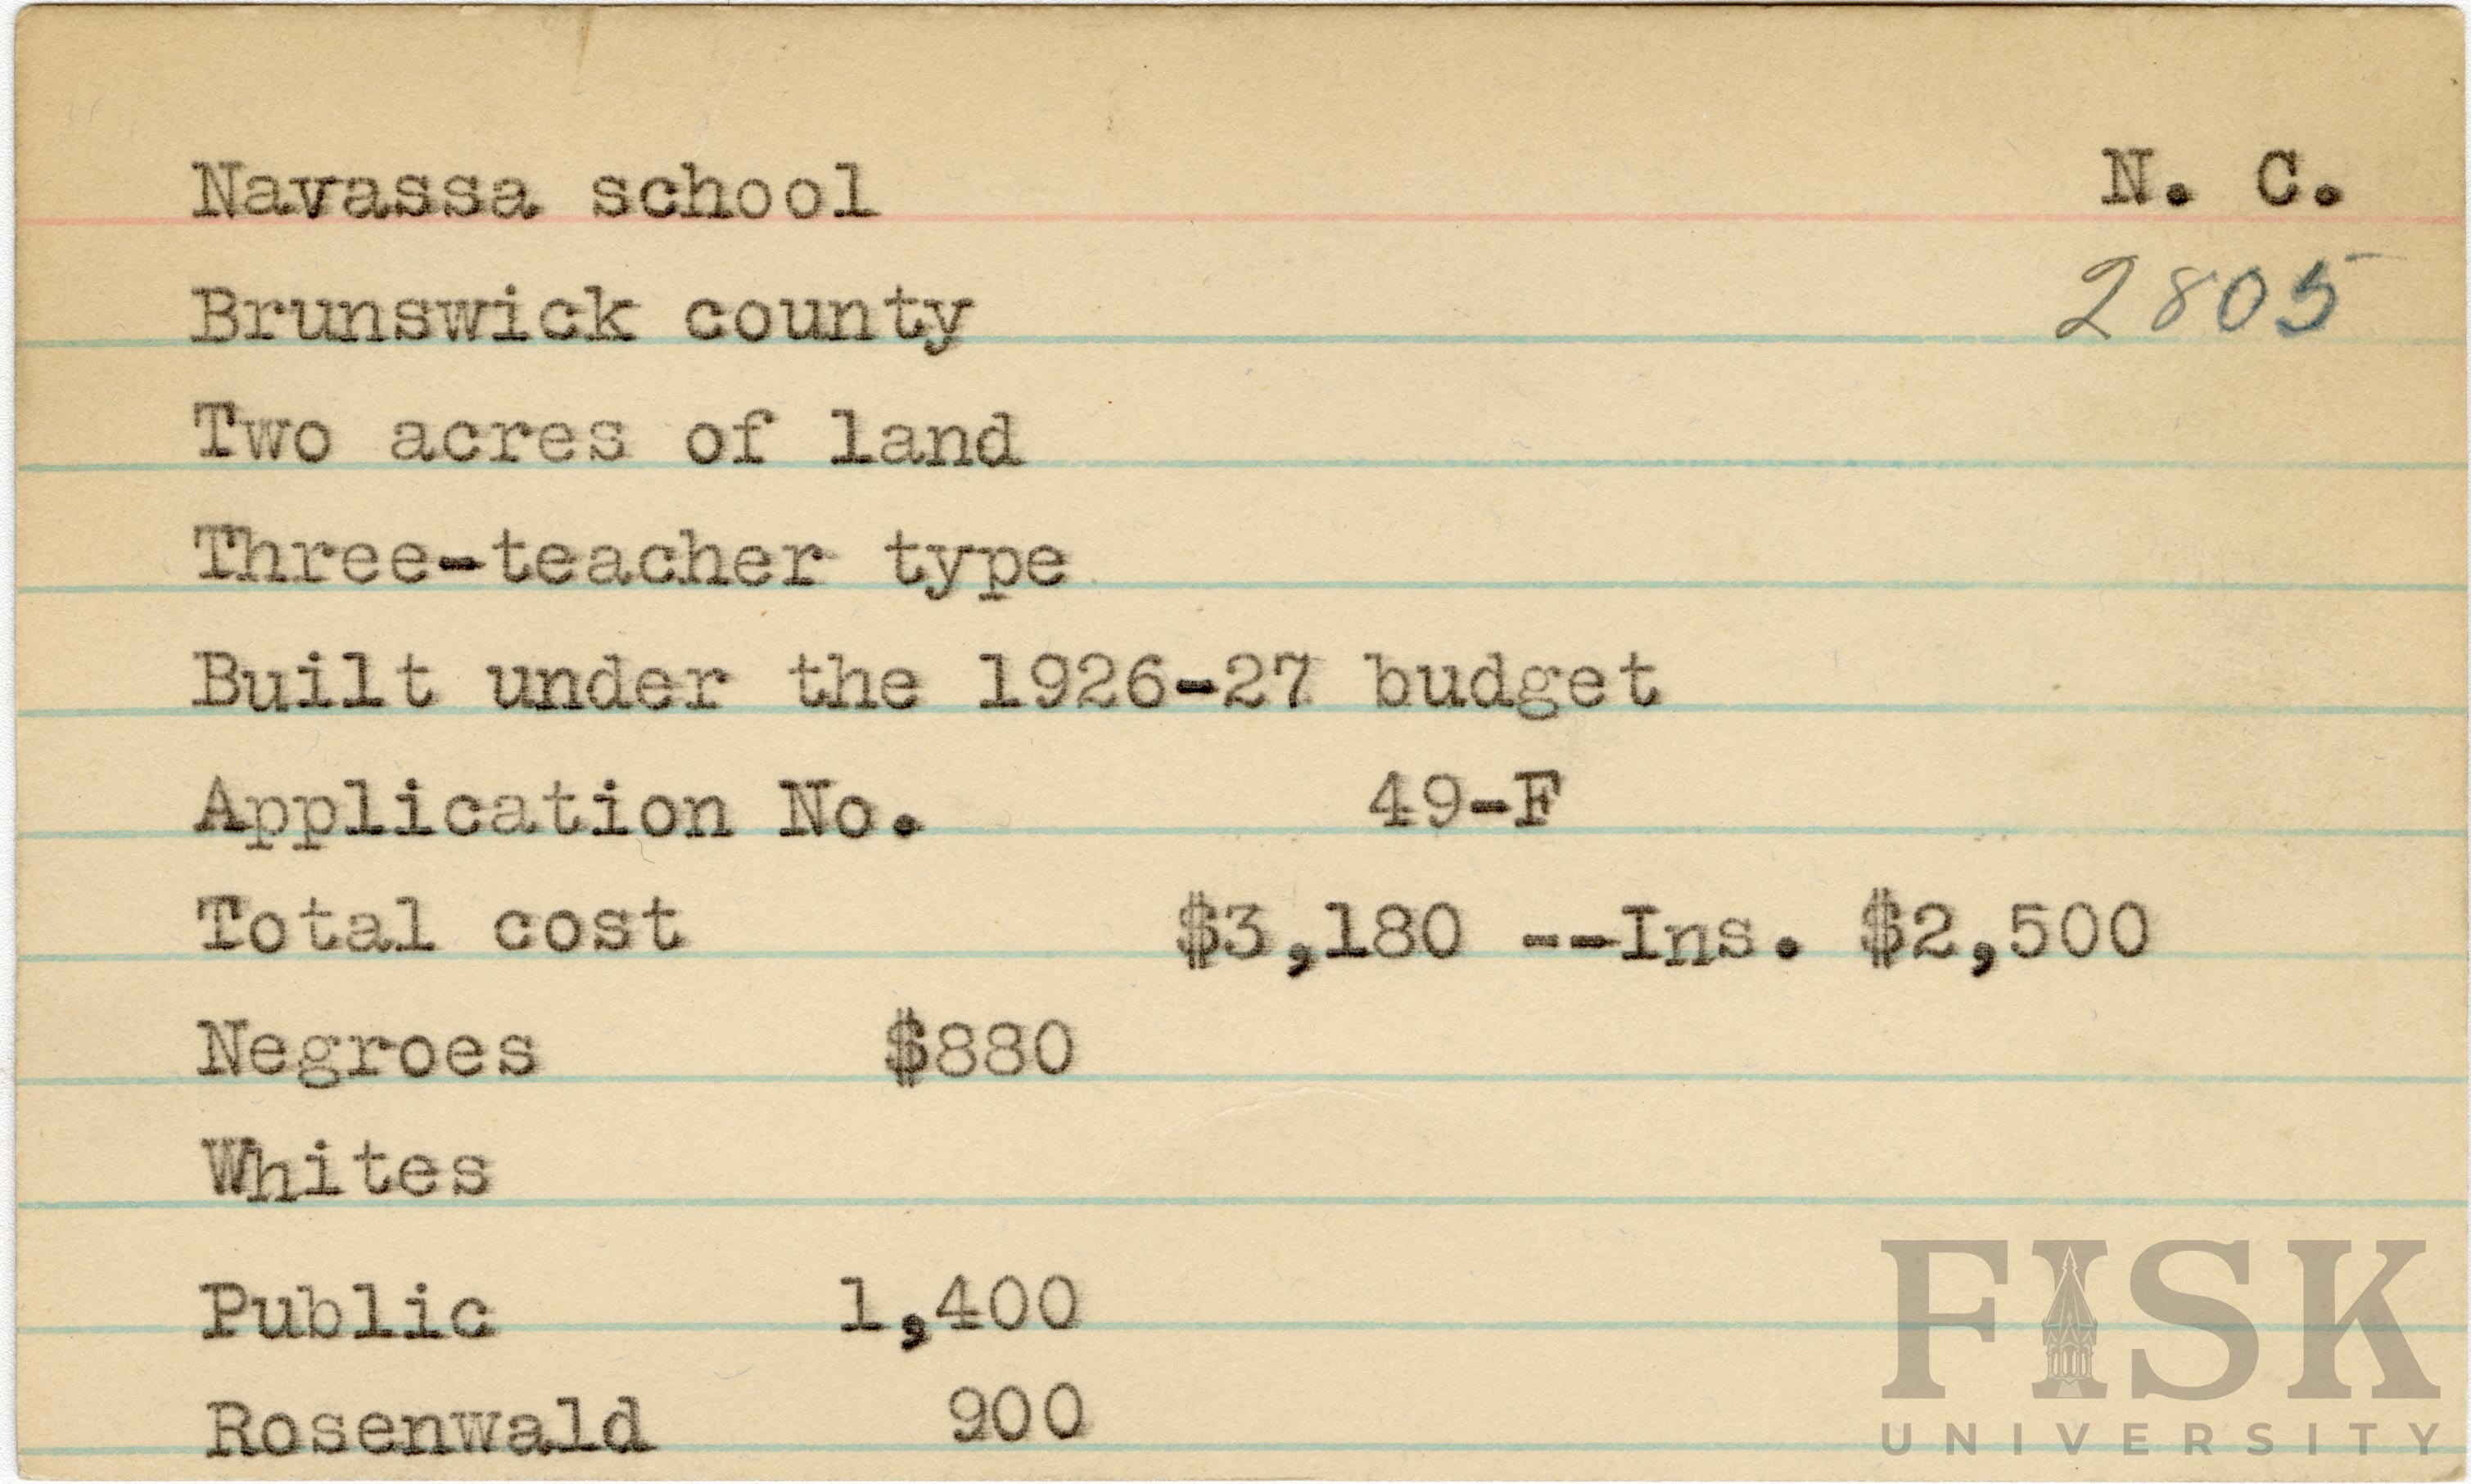 Navassa school N. C.
2805
Brunswick county
Two acres of land
Three-teacher type
Built under the 1926-27 budget
Application No. 49-F
Total cost $3,180 --Ins. $2,500
Negroes $880
Whites
Public 1,400
Rosenwald 900
FISK
UNIVERSITY